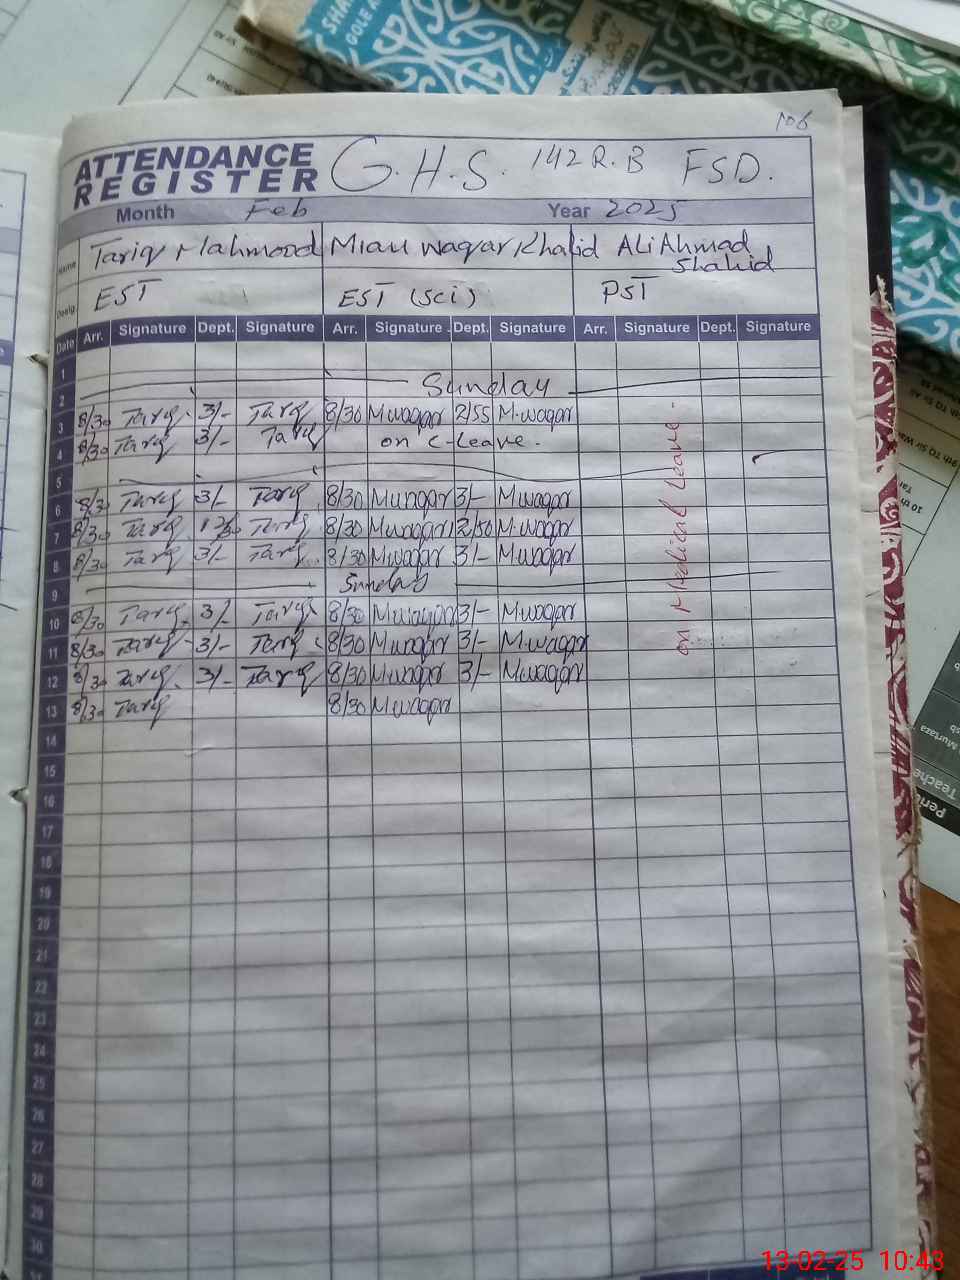 106
ATTENDANCE REGISTER G.H.S. 142 R.B FSD.
Month Feb Year 2025
Name Tariq Mahmood Mian Waqar Khalid Ali Ahmad Shahid
Desig EST EST (sci) PST
Date Arr. Signature Dept. Signature Arr. Signature Dept. Signature Arr. Signature Dept. Signature
1
2 Sunday
3 8/30 Tariq 3/- Tariq 8/30 M.waqar 2/55 M.waqar
4 8/30 Tariq 3/- Tariq on C-Leave.
5
6 8/30 Tariq 3/- Tariq 8/30 M.waqar 3/- M.waqar
7 8/30 Tariq Tariq 8/30 M.waqar M.waqar
8 8/30 Tariq 3/- Tariq 8/30 M.waqar 3/- M.waqar
9 Sunday
10 8/30 Tariq 3/- Tariq 8/30 M.waqar 3/- M.waqar
11 8/30 Tariq 3/- Tariq 8/30 M.waqar 3/- M.waqar
12 8/30 Tariq 3/- Tariq 8/30 M.waqar 3/- M.waqar
13 8/30 Tariq 8/30 M.waqar
on Medical Leave.
14
15
16
17
18
19
20
21
22
23
24
25
26
27
28
29
30
13-02-25 10:43